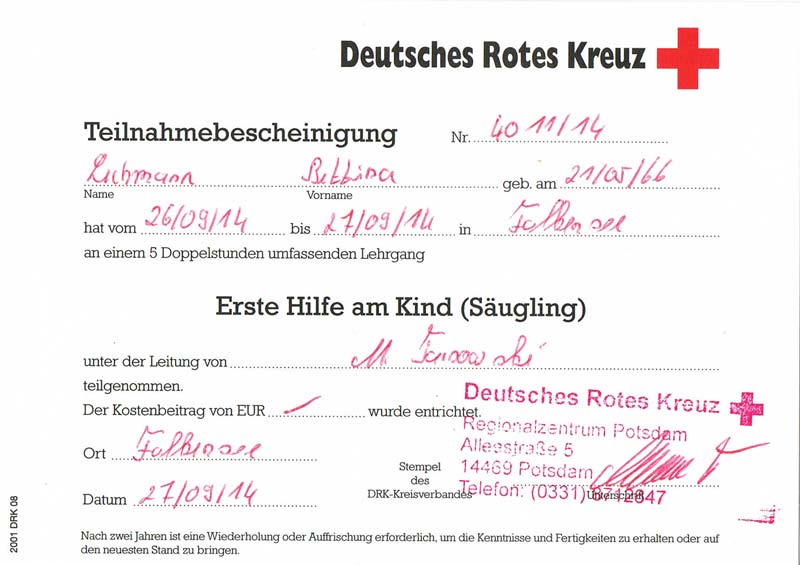 Deutsches Rotes Kreuz
Teilnahmebescheinigung Nr. 40 11/14
Bettina geb. am 21/05/66
Name Vorname
hat vom 26/09/14 bis 27/09/14 in Falkensee
an einem 5 Doppelstunden umfassenden Lehrgang
Erste Hilfe am Kind (Säugling)
unter der Leitung von M
teilgenommen.
Der Kostenbeitrag von EUR wurde entrichtet.
Deutsches Rotes Kreuz
Regionalzentrum Potsdam
Alleestraße 5
14469 Potsdam
Telefon: (0331)
Ort Falkensee
Stempel
des
DRK-Kreisverbandes
Unterschrift
Datum 27/09/14
2001 DRK 08
Nach zwei Jahren ist eine Wiederholung oder Auffrischung erforderlich, um die Kenntnisse und Fertigkeiten zu erhalten oder auf
den neuesten Stand zu bringen.